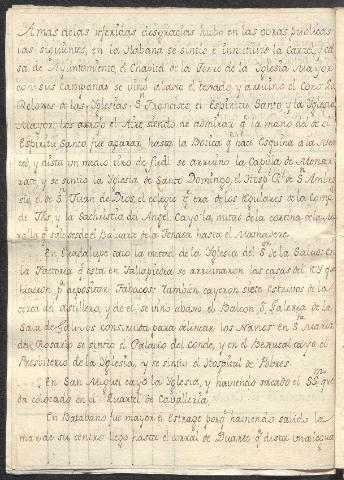 A mas de las referidas desgracias hubo en las obras publicas
las siguientes, en la Habana se sintio e innutilizó la Carzel, y ca
sa de Ayuntamiento, el Chapitel de la Torre de la Yglesia Mayor
con sus campanas se vino abaxo el texado, y arruino el Coro. Los
Reloxes de las Yglesias Sn Francisco, el Espiritu Santo y la Yglesia
Mayor, los arrojó el Aire siendo de admirar qe la mano del de el
Espiritu Santo fue aparar, hasta la Botica qe hace Esquina a la Mer
ced, y dista un medio tiro de fusil se arruinó la Capilla de Monser
rate y se sintio la Yglesia de Santo Domingo, el Hospl Rl de Sn Ambro
sio, el de Sn Juan de Dios, el colegio qe era de los Regulares de la Comp
de Jhs y la Sachristia del Angel. Cayo la mitad de la cortina de la Mu
ralla qe sale desde el Baluarte de la Tenaza hasta el
En Guadalupe caio la metad de la Yglesia del Sr de la Salud: en
la Factoria qe esta en Tallapiedra se arruinaron las casas del Rey que
hicieron pa depositar Tabacos: tambien cayeron siete estrivos de la
cerca del astillero, y de el, se vino abaxo el Balcon, o Galeria de la
Sala de Galivos construida para delinear los Navios. en Sta Maria
del Rosario se sintio el Palacio del Conde, y en el Bejucal cayo el
Presbiterio de la Yglesia, y se sintio el Hospital de Pobres.
En San Miguel cayo la Yglesia, y haviendo sacado el SSmo que
do colocado en el Quartel de Cavalleria.
En Batabanó fue mayor el estrago porqe haviendo salido la
mar de su centro llego hasta el corral de Duarte qe dista una legua